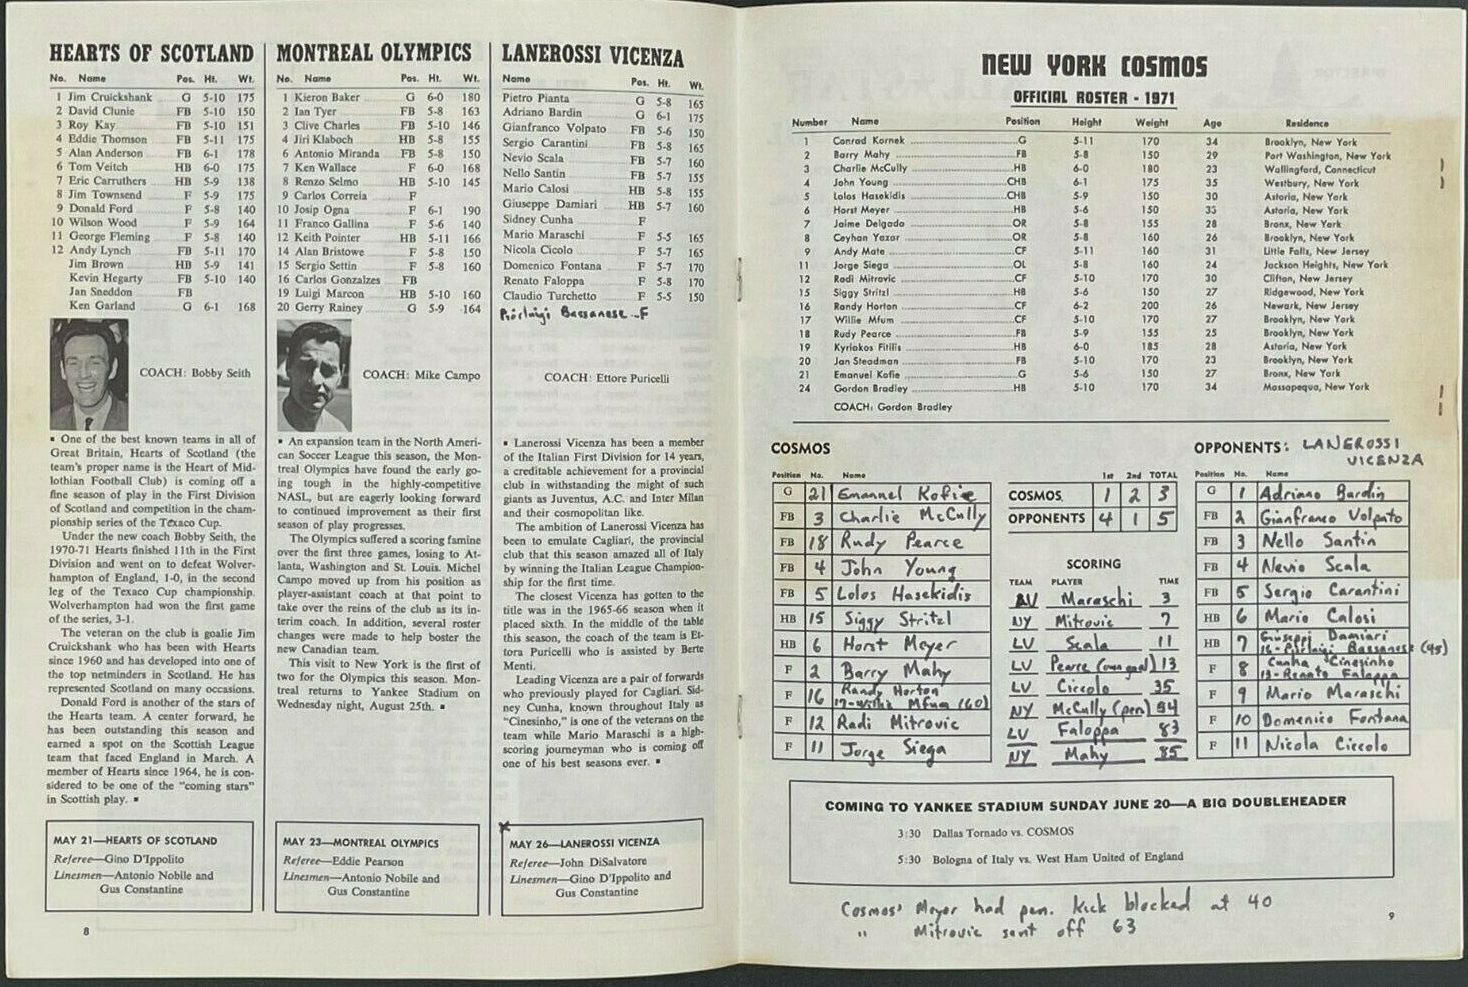 HEARTS OF SCOTLAND
No. Name Pos. Ht. Wt.
1 Jim Cruickshank G 5-10 175
2 David Clunie FB 5-10 150
3 Roy Kay FB 5-10 151
4 Eddie Thomson FB 5-11 175
5 Alan Anderson FB 6-1 178
6 Tom Veitch HB 6-0 175
7 Eric Carruthers HB 5-9 138
8 Jim Townsend F 5-9 175
9 Donald Ford F 5-8 140
10 Wilson Wood F 5-9 164
11 George Fleming F 5-8 140
12 Andy Lynch FB 5-11 170
Jim Brown HB 5-9 141
Kevin Hegarty FB 5-10 140
Jan Sneddon FB
Ken Garland G 6-1 168
COACH: Bobby Seith
▪ One of the best known teams in all of
Great Britain, Hearts of Scotland (the
team's proper name is the Heart of Mid-
lothian Football Club) is coming off a
fine season of play in the First Division
of Scotland and competition in the cham-
pionship series of the Texaco Cup.
Under the new coach Bobby Seith, the
1970-71 Hearts finished 11th in the First
Division and went on to defeat Wolver-
hampton of England, 1-0, in the second
leg of the Texaco Cup championship.
Wolverhampton had won the first game
of the series, 3-1.
The veteran on the club is goalie Jim
Cruickshank who has been with Hearts
since 1960 and has developed into one of
the top netminders in Scotland. He has
represented Scotland on many occasions.
Donald Ford is another of the stars of
the Hearts team. A center forward, he
has been outstanding this season and
earned a spot on the Scottish League
team that faced England in March. A
member of Hearts since 1964, he is con-
sidered to be one of the "coming stars"
in Scottish play. ▪
MAY 21—HEARTS OF SCOTLAND
Referee—Gino D'Ippolito
Linesmen—Antonio Nobile and
Gus Constantine
8
MONTREAL OLYMPICS
No. Name Pos. Ht. Wt.
1 Kieron Baker G 6-0 180
2 Ian Tyer FB 5-8 163
3 Clive Charles FB 5-10 146
4 Jiri Klaboch HB 5-8 155
6 Antonio Miranda FB 5-8 150
7 Ken Wallace F 6-0 168
8 Renzo Selmo HB 5-10 145
9 Carlos Correia F
10 Josip Ogna F 6-1 190
11 Franco Gallina F 5-6 140
12 Keith Pointer HB 5-11 166
14 Alan Bristowe F 5-8 150
15 Sergio Settin F 5-8 160
16 Carlos Gonzalzes FB
19 Luigi Marcon HB 5-10 160
20 Gerry Rainey G 5-9 164
COACH: Mike Campo
▪ An expansion team in the North Ameri-
can Soccer League this season, the Mon-
treal Olympics have found the early go-
ing tough in the highly-competitive
NASL, but are eagerly looking forward
to continued improvement as their first
season of play progresses.
The Olympics suffered a scoring famine
over the first three games, losing to At-
lanta, Washington and St. Louis. Michel
Campo moved up from his position as
player-assistant coach at that point to
take over the reins of the club as its in-
terim coach. In addition, several roster
changes were made to help boster the
new Canadian team.
This visit to New York is the first of
two for the Olympics this season. Mon-
treal returns to Yankee Stadium on
Wednesday night, August 25th. ▪
MAY 23—MONTREAL OLYMPICS
Referee—Eddie Pearson
Linesmen—Antonio Nobile and
Gus Constantine
LANEROSSI VICENZA
Name Pos. Ht. Wt.
Pietro Pianta G 5-8 165
Adriano Bardin G 6-1 175
Gianfranco Volpato FB 5-6 150
Sergio Carantini FB 5-8 165
Nevio Scala FB 5-7 160
Nello Santin FB 5-7 155
Mario Calosi HB 5-8 155
Giuseppe Damiari HB 5-7 160
Sidney Cunha F
Mario Maraschi F 5-5 165
Nicola Cicolo F 5-7 165
Domenico Fontana F 5-7 170
Renato Faloppa F 5-8 170
Claudio Turchetto F 5-5 150
Pierluigi Bassanese - F
COACH: Ettore Puricelli
▪ Lanerossi Vicenza has been a member
of the Italian First Division for 14 years,
a creditable achievement for a provincial
club in withstanding the might of such
giants as Juventus, A.C. and Inter Milan
and their cosmopolitan like.
The ambition of Lanerossi Vicenza has
been to emulate Cagliari, the provincial
club that this season amazed all of Italy
by winning the Italian League Champion-
ship for the first time.
The closest Vicenza has gotten to the
title was in the 1965-66 season when it
placed sixth. In the middle of the table
this season, the coach of the team is Et-
tora Puricelli who is assisted by Berte
Menti.
Leading Vicenza are a pair of forwards
who previously played for Cagliari. Sid-
ney Cunha, known throughout Italy as
"Cinesinho," is one of the veterans on the
team while Mario Maraschi is a high-
scoring journeyman who is coming off
one of his best seasons ever. ▪
x
MAY 26—LANEROSSI VICENZA
Referee—John DiSalvatore
Linesmen—Gino D'Ippolito and
Gus Constantine
NEW YORK COSMOS
OFFICIAL ROSTER - 1971
Number Name Position Height Weight Age Residence
1 Conrad Kornek G 5-11 170 34 Brooklyn, New York
2 Barry Mahy FB 5-8 150 29 Port Washington, New York
3 Charlie McCully HB 6-0 180 23 Wallingford, Connecticut
4 John Young CHB 6-1 175 35 Westbury, New York
5 Lolos Hasekidis CHB 5-9 150 30 Astoria, New York
6 Horst Meyer HB 5-6 150 33 Astoria, New York
7 Jaime Delgado OR 5-8 155 28 Bronx, New York
8 Ceyhan Yazar OR 5-8 160 26 Brooklyn, New York
9 Andy Mate CF 5-11 160 31 Little Falls, New Jersey
11 Jorge Siega OL 5-8 160 24 Jackson Heights, New York
12 Radi Mitrovic CF 5-10 170 30 Clifton, New Jersey
15 Siggy Stritzl HB 5-6 150 27 Ridgewood, New York
16 Randy Horton CF 6-2 200 26 Newark, New Jersey
17 Willie Mfum CF 5-10 170 27 Brooklyn, New York
18 Rudy Pearce FB 5-9 155 25 Brooklyn, New York
19 Kyriakos Fitilis HB 6-0 185 28 Astoria, New York
20 Jan Steadman FB 5-10 170 23 Brooklyn, New York
21 Emanuel Kofie G 5-6 150 27 Bronx, New York
24 Gordon Bradley HB 5-10 170 34 Massapequa, New York
COACH: Gordon Bradley
COSMOS
Position No. Name
G 21 Emanuel Kofie
FB 3 Charlie McCully
FB 18 Rudy Pearce
FB 4 John Young
FB 5 Lolos Hasekidis
HB 15 Siggy Stritzl
HB 6 Horst Meyer
F 2 Barry Mahy
F 16 Randy Horton
17-Willie Mfum (60)
F 12 Radi Mitrovic
F 11 Jorge Siega
1st 2nd TOTAL
COSMOS 1 2 3
OPPONENTS 4 1 5
SCORING
TEAM PLAYER TIME
LV Maraschi 3
NY Mitrovic 7
LV Scala 11
LV Pearce (own goal) 13
LV Ciccolo 35
NY McCully (pen) 54
LV Faloppa 83
NY Mahy 85
OPPONENTS: LANEROSSI
VICENZA
Position No. Name
G 1 Adriano Bardin
FB 2 Gianfranco Volpato
FB 3 Nello Santin
FB 4 Nevio Scala
FB 5 Sergio Carantini
HB 6 Mario Calosi
HB 7 Giuseppi Damiari
16-Pierluigi Bassanese (45)
F 8 Cunha "Cinesinho
13-Renato Faloppa
F 9 Mario Maraschi
F 10 Domenico Fontana
F 11 Nicola Ciccolo
COMING TO YANKEE STADIUM SUNDAY JUNE 20—A BIG DOUBLEHEADER
3:30 Dallas Tornado vs. COSMOS
5:30 Bologna of Italy vs. West Ham United of England
Cosmos' Meyer had pen. kick blocked at 40
" Mitrovic sent off 63
9